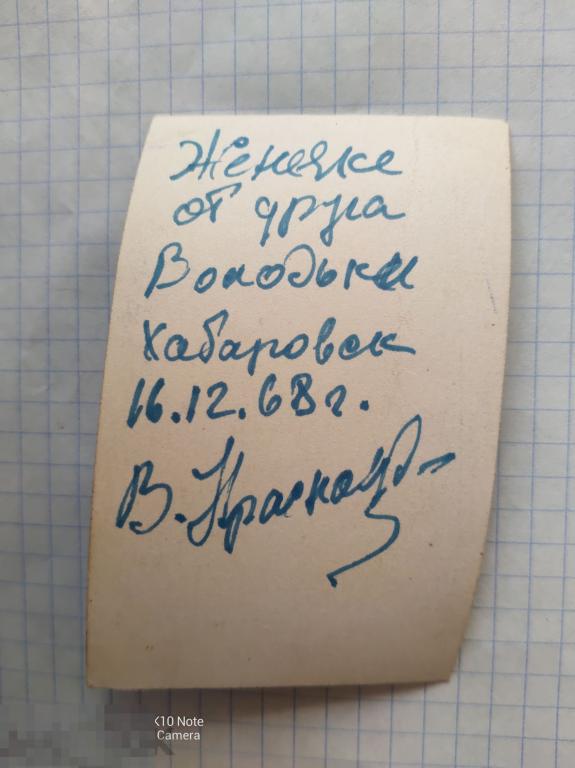 Женечке
от друга
Володьки
Хабаровск
16.12.68г.
В.
K10 Note
Camera